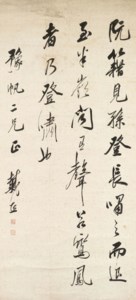 阮籍見孫登長嘯而退
至半嶺聞有聲若鸞鳳
者乃登嘯也
豫帆二兄正 戴熙